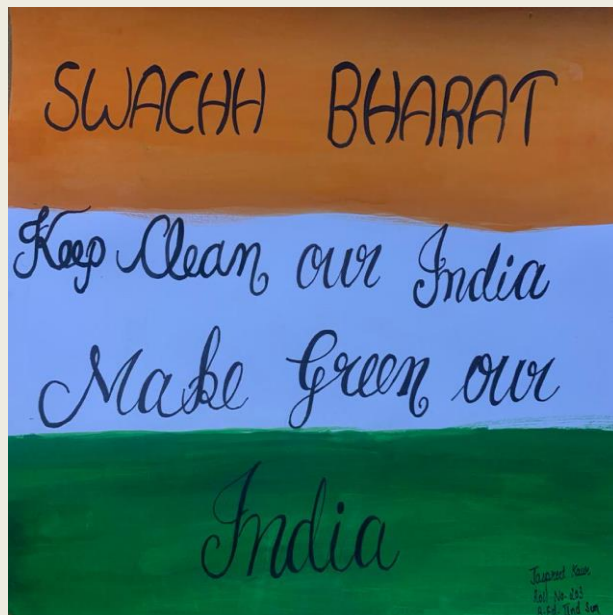 SWACHH BHARAT
Keep Clean our India
Make Green our
India
Kaur
Roll No. 203